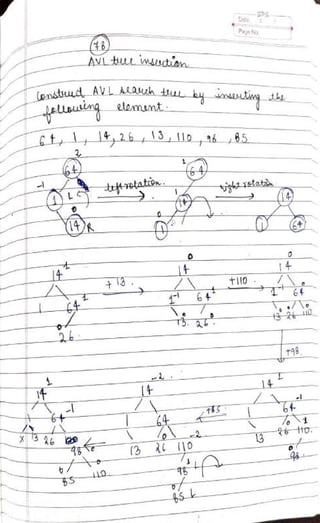 Date
Page No.
78
AVL tree insertion
Construct AVL search tree by inserting the
following element.
64, 1, 14, 26, 13, 110, 98, 85
2
64
-1
1
L
0
14
R
left rotation
2
64
1
14
0
1
right rotation
14
1 64
14 1
1 64 1
0
26
+13
0
14
1 -1 64 1
0 0
13 26
+110
0
14
1 -1 64 0
0 0 0
13 26 110
+98
14 1
1 64 -1
0 1
13 26 110
0
98
+85
14 -2
1 64
0 -2
13 26 110
98 1
0
85 L
14 1
1 64 -1
x 13 26 98 0
0 0
85 110